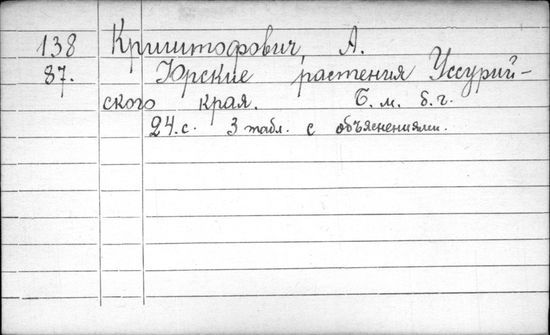 138 Криштофович, А.
87. Юрские растения Уссурий-
ского края. Б. м. б. г.
24.с. 3 табл. с объяснениями.